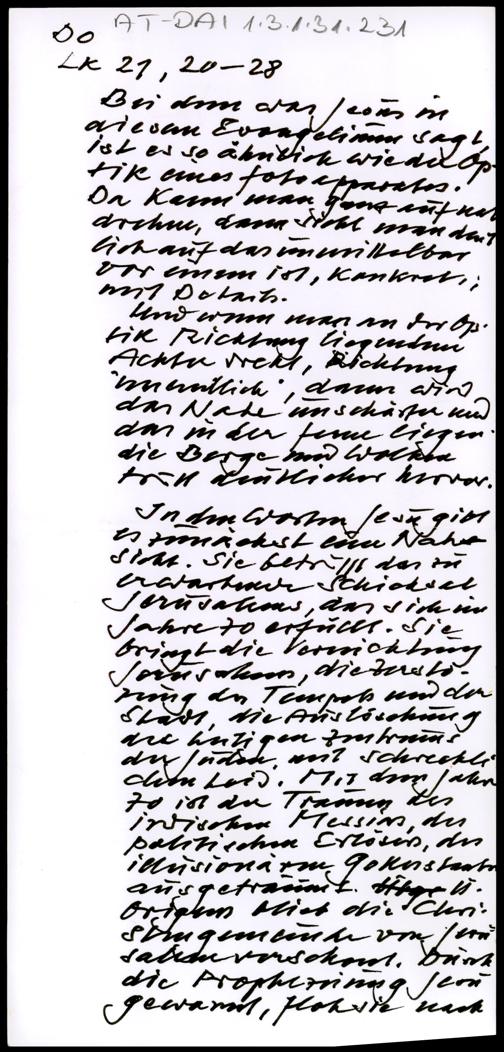 AT-DAI 1.3.1.31.231
Do
Lk 21, 20-28
Bei dem was Jesus in
diesem Evangelium sagt,
ist es so ähnlich wie der Op-
tik eines Fotoapparates.
Da kann man ganz auf nah
drehen, dann sieht man deut
lich auf das unmittelbar
vor einem ist, konkret,
mit Details.
Und wenn man an der Op-
tik Richtung liegenden
Achter dreht, Richtung
"unendlich", dann wird
das Nahe unschärfer und
das in der Ferne liegen-
die Berge und Wolken
tritt deutlicher hervor.
In den Worten Jesu gibt
es zunächst eine Nahe
sicht. Sie betrifft das zu
erwartende Schicksal
Jerusalems, das sich im
Jahre 70 erfüllt. Sie
bringt die Vernichtung
Jerusalems, die Zerstö-
rung des Tempels und der
Stadt, die Auslöschung
des hutigen Zentrums
der Juden, mit schreckli
chem Leid. Mit dem Jahr
70 ist der Traum des
irdischen Messias, des
politischen Erlösers, des
illusionären Gottesstaates
ausgeträumt. U.
Origens blieb die Chri-
stengemeinde von Jeru
salem verschont. Durch
die Prophezeiung Jesu
gewarnt, floh sie nach